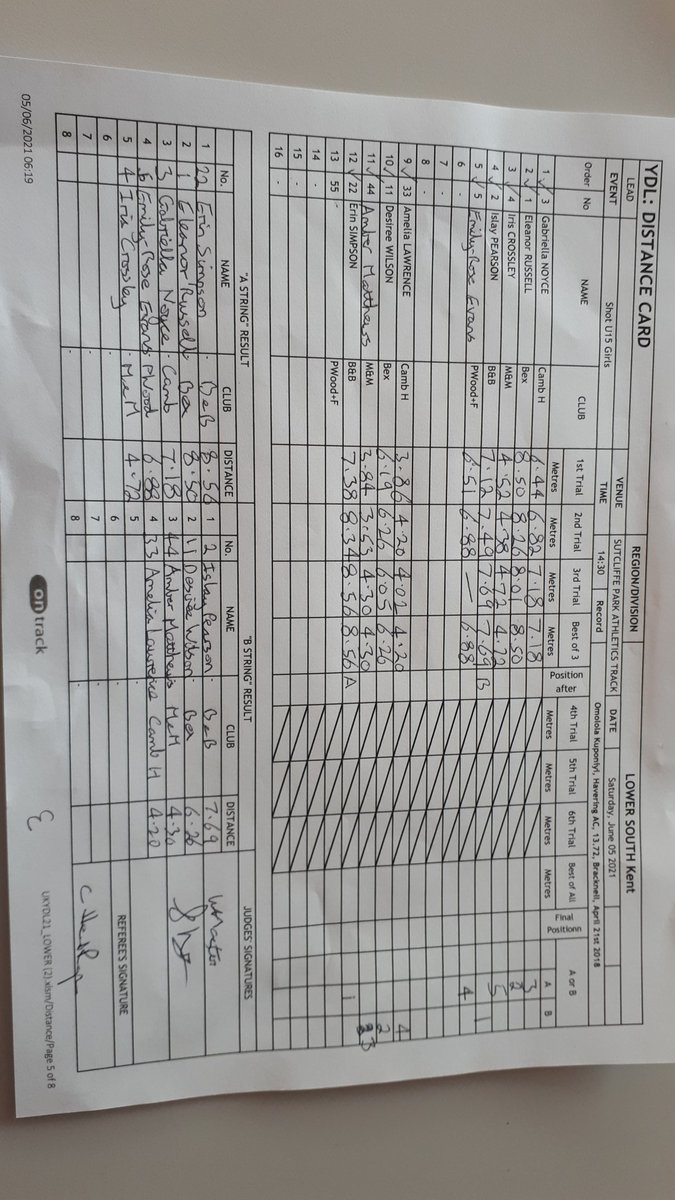 YDL: DISTANCE CARD REGION/DIVISION LOWER SOUTH Kent
LEAD VENUE SUTCLIFFE PARK ATHLETICS TRACK DATE Saturday, June 05 2021
EVENT Shot U15 Girls TIME 14:30 Record Omolola Kuponiyi, Havering AC, 13.72, Bracknell, April 21st 2018
Order No NAME CLUB 1st Trial 2nd Trial 3rd Trial Best of 3 Position after 4th Trial 5th Trial 6th Trial Best of All Final Positionn A or B
Metres Metres Metres Metres Metres Metres Metres Metres A B
1 ✓ 3 Gabriella NOYCE Camb H 6.44 6.82 7.18 7.18 3
2 ✓ 1 Eleanor RUSSELL Bex 8.50 8.26 8.01 8.50 2
3 ✓ 4 Iris CROSSLEY M&M 4.52 4.38 4.72 4.72 5
4 ✓ 2 Islay PEARSON B&B 7.12 7.49 7.69 7.69 B 1
5 ✓ 5 Emily-Rose Evans PWood+F 6.51 6.88 — 6.88 4
6 -
7 -
8 -
9 ✓ 33 Amelia LAWRENCE Camb H 3.86 4.20 4.02 4.20 4
10 ✓ 11 Desiree WILSON Bex 6.19 6.26 6.05 6.26 2
11 ✓ 44 Amber Matthews M&M 3.84 3.53 4.30 4.30 3
12 ✓ 22 Erin SIMPSON B&B 7.38 8.34 8.56 8.56 A 1
13 55 - PWood+F
14 -
15 -
16 -
"A STRING" RESULT "B STRING" RESULT JUDGES' SIGNATURES
No. NAME CLUB DISTANCE No. NAME CLUB DISTANCE
1 22 Erin Simpson B&B 8.56 1 2 Islay Pearson B&B 7.69
2 1 Eleanor Russell Bex 8.50 2 11 Desiree Wilson Bex 6.26
3 3 Gabriella Noyce Camb 7.18 3 44 Amber Matthews M&M 4.30
4 5 Emily Rose Evans PWood 6.88 4 33 Amelia Lawrence Camb H 4.20
5 4 Iris Crossley M&M 4.72 5
6 6 REFEREE'S SIGNATURE
7 7
8 8
05/06/2021 06:19 on track UKYDL21_LOWER (2).xlsm/Distance/Page 5 of 8